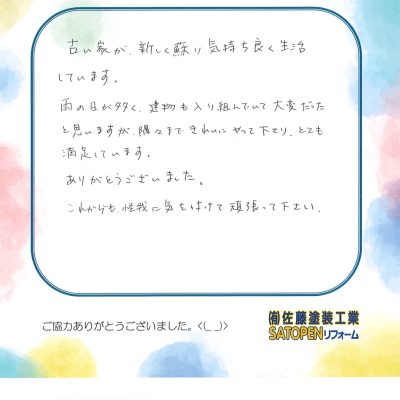 古い家が、新しく蘇り気持ち良く生活
しています。
雨の日が多く、建物も入り組んでいて大変だった
と思いますが、隅々まできれいにやって下さり、とても
満足しています。
ありがとうございました。
これからも怪我に気をつけて頑張って下さい。
ご協力ありがとうございました。<(_ _)>
(有)佐藤塗装工業
SATOPENリフォーム